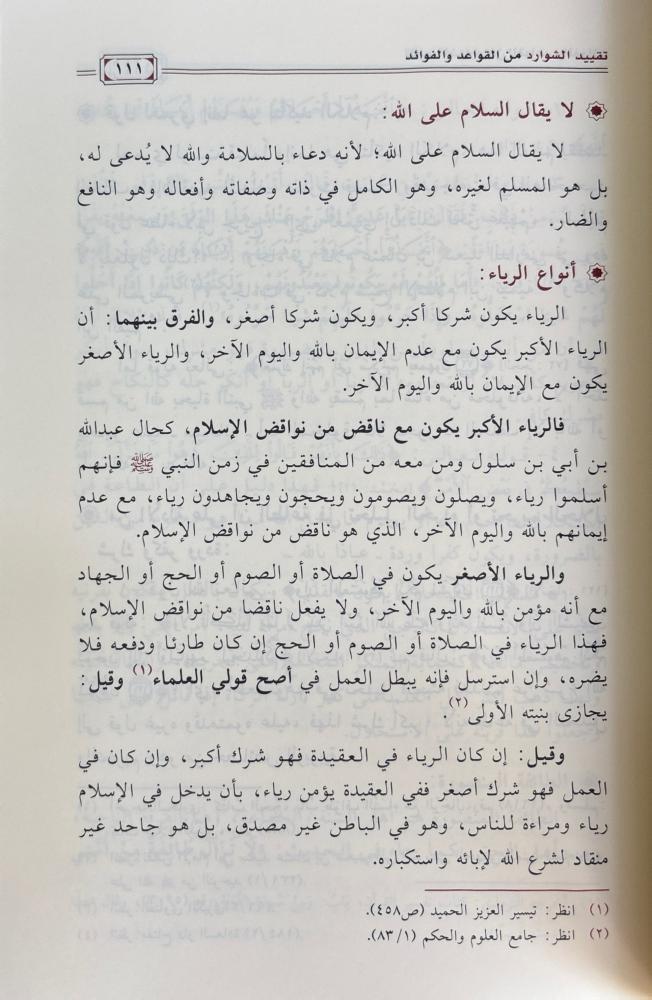 تقييد الشوارد من القواعد والفوائد
١١١
لا يقال السلام على الله:
لا يقال السلام على الله؛ لأنه دعاء بالسلامة والله لا يُدعى له،
بل هو المسلم لغيره، وهو الكامل في ذاته وصفاته وأفعاله وهو النافع
والضار.
أنواع الرياء:
الرياء يكون شركا أكبر، ويكون شركا أصغر، والفرق بينهما: أن
الرياء الأكبر يكون مع عدم الإيمان بالله واليوم الآخر، والرياء الأصغر
يكون مع الإيمان بالله واليوم الآخر.
فالرياء الأكبر يكون مع ناقض من نواقض الإسلام، كحال عبدالله
بن أبي بن سلول ومن معه من المنافقين في زمن النبي ﷺ فإنهم
أسلموا رياء، ويصلون ويصومون ويحجون ويجاهدون رياء، مع عدم
إيمانهم بالله واليوم الآخر، الذي هو ناقض من نواقض الإسلام.
والرياء الأصغر يكون في الصلاة أو الصوم أو الحج أو الجهاد
مع أنه مؤمن بالله واليوم الآخر، ولا يفعل ناقضا من نواقض الإسلام،
فهذا الرياء في الصلاة أو الصوم أو الحج إن كان طارئا ودفعه فلا
يضره، وإن استرسل فإنه يبطل العمل في أصح قولي العلماء(١) وقيل:
يجازى بنيته الأولى(٢).
وقيل: إن كان الرياء في العقيدة فهو شرك أكبر، وإن كان في
العمل فهو شرك أصغر ففي العقيدة يؤمن رياء، بأن يدخل في الإسلام
رياء ومراءة للناس، وهو في الباطن غير مصدق، بل هو جاحد غير
منقاد لشرع الله لإبائه واستكباره.
(١) انظر: تيسير العزيز الحميد (ص٤٥٨).
(٢) انظر: جامع العلوم والحكم (١/ ٨٣).